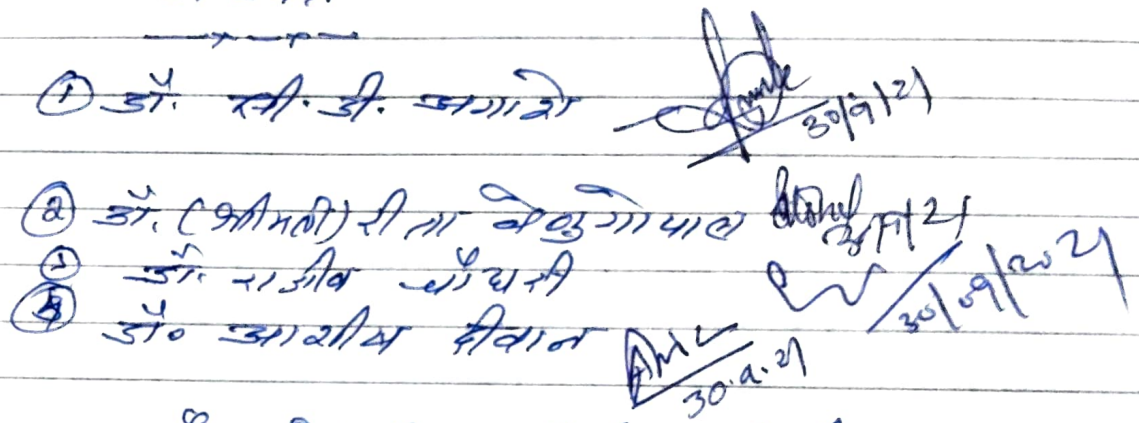 ① डॉ. सी. डी. अगाशे 30/9/21
② डॉ. (श्रीमती) रीता वेणुगोपाल 30/9/21
③ डॉ. राजीव चौधरी 30/09/2021
④ डॉ० आशीष दीवान 30.9.21